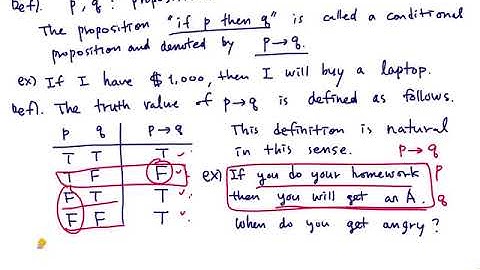 Def). p, q : propositions
The proposition "if p then q" is called a conditional
proposition and denoted by p→q.
ex) If I have $1,000, then I will buy a laptop.
Def). The truth value of p→q is defined as follows.
p q p→q
T T T
T F F
F T T
F F T
This definition is natural
in this sense. p→q
ex) If you do your homework p
then you will get an A. q
When do you get angry?